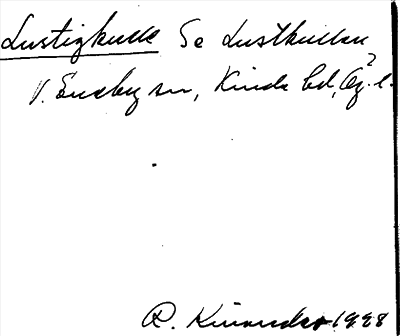 Lustigkulle Se Lustkullen
V. Eneby sn, Kinda hd, Ög. l.
R. Kinander 1928